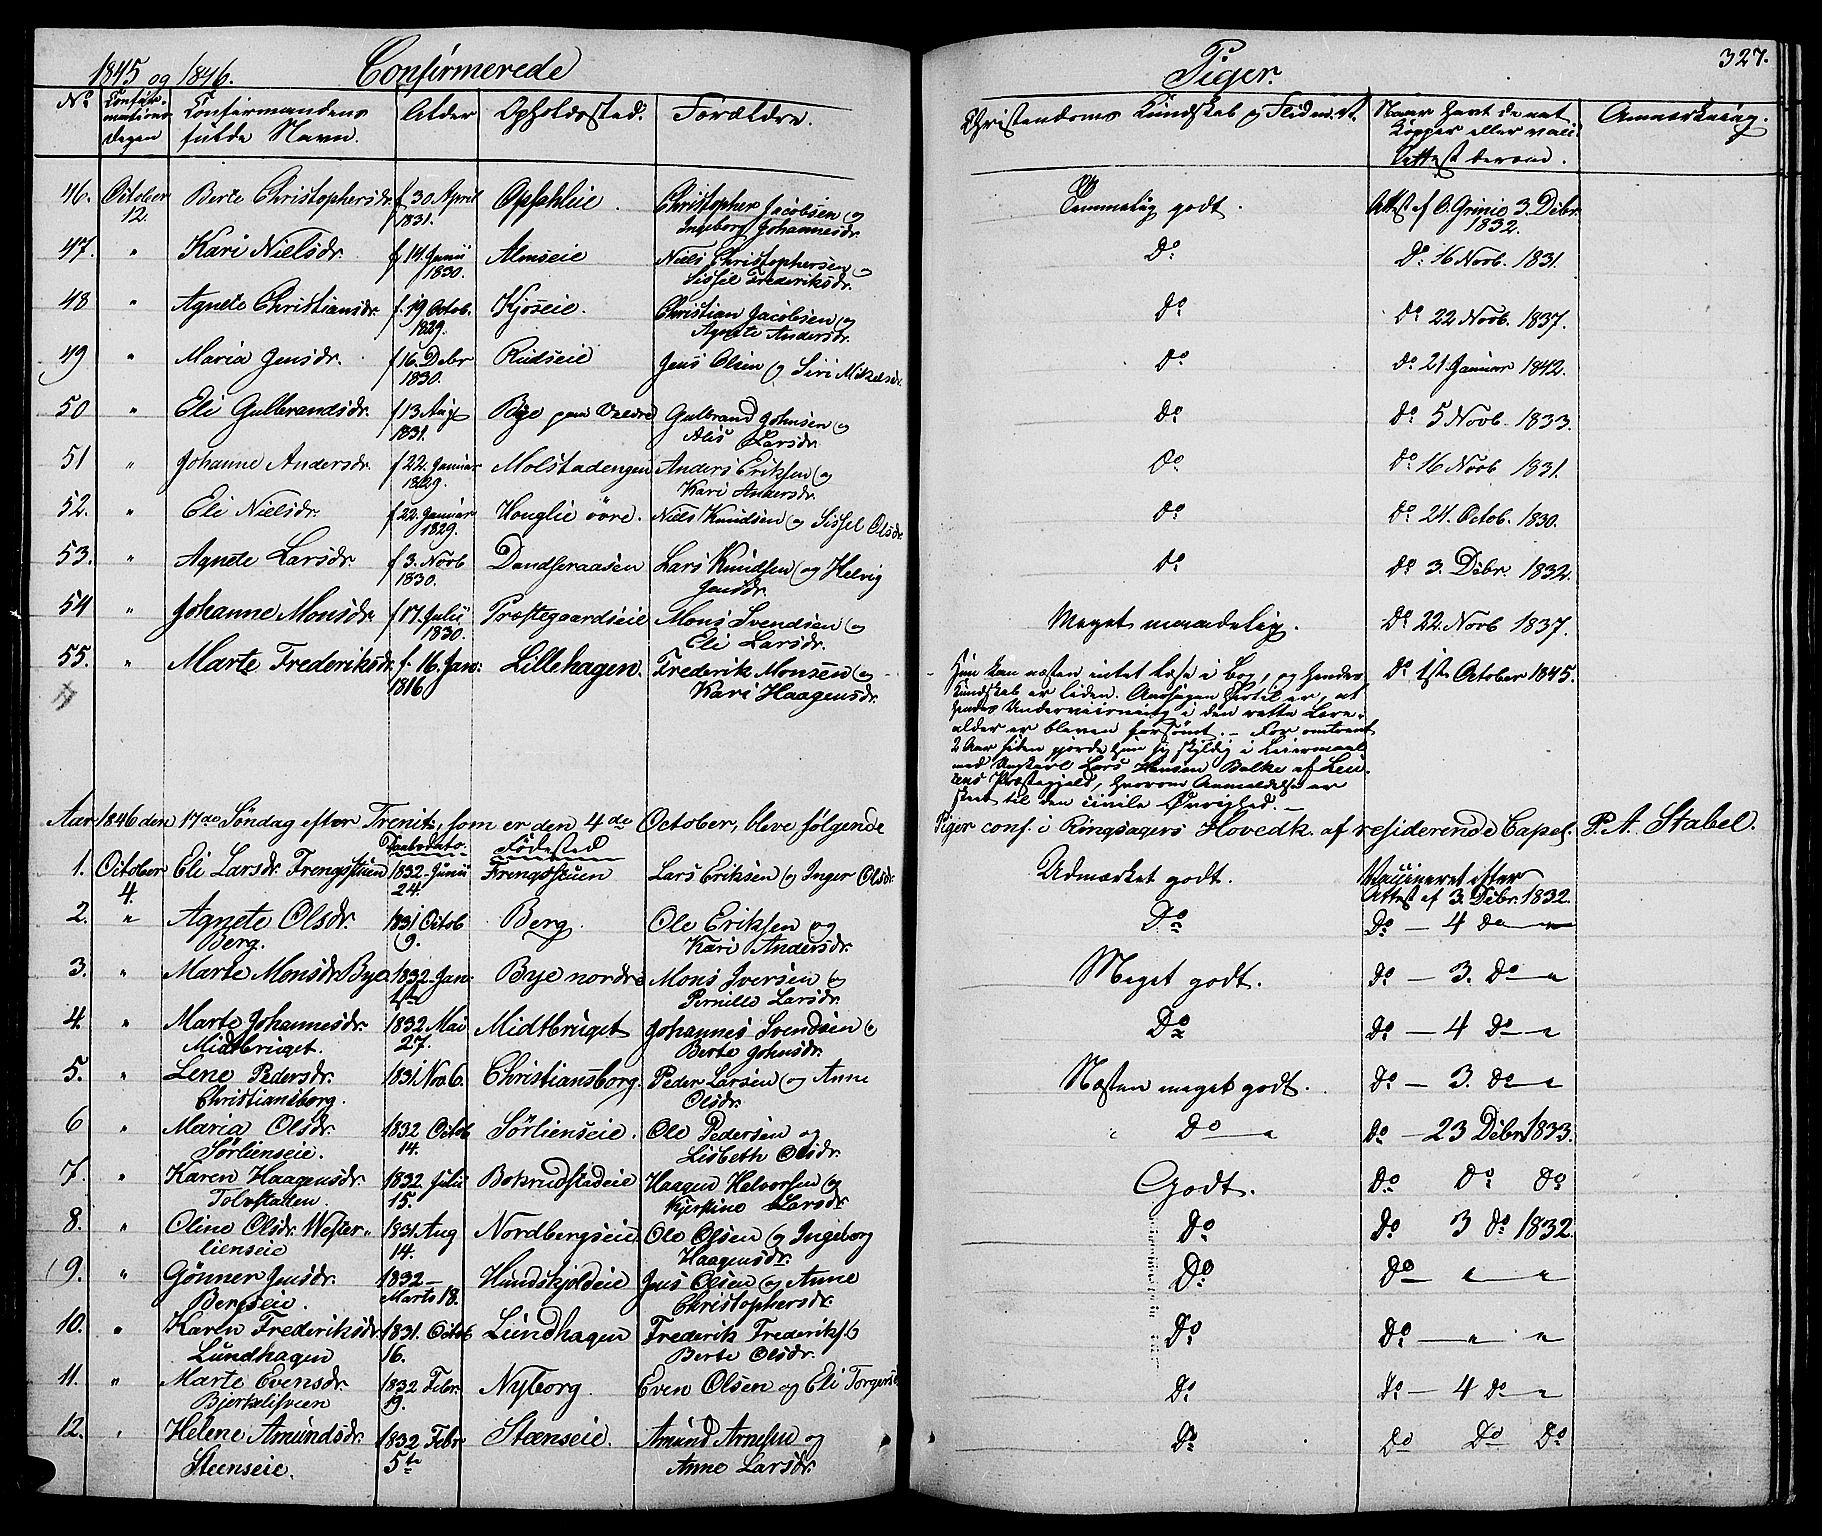 1845 og 1846. Confirmerede Piger. 327.
No Confirmationsdagen Confirmandens fulde Navn. Alder Opholdssted. Forældre. Christendoms Kundskab og Flid m.v. Naar havt de nat. Kopper eller vacc. Attest derom. Anmærkning.
46. October 12. Berte Christophersdr. f. 30 April 1831. Opsahleie. Christopher Jacobsen og Ingeborg Johannesdr. Temmelig godt. Attest af O. Grinie 3. Decbr 1832.
47. " Kari Nielsdr. f. 14. Junii 1830. Almseie Niels Christophersen og Sissel Frederiksdr. Do Do 16 Novb. 1831.
48 " Agnete Christiansdr. f. 19 Octob. 1829. Kjoseie. Christian Jacobsen og Agnete Andersdr. Do Do 22 Novb. 1837.
49 " Maria Jensdr. f 16. Debr 1830. Rudseie Jens Olsen og Siri Mikelsdr Do Do 21 Januar 1842.
50 " Eli Gulbrandsdr. f 13 Aug 1831. Bye paa Valdre Gulbrand Johnsen og Alis Larsdr. Do Do 5 Novb. 1833.
51 " Johanne Andersdr. f 22. Januar 1829. Molstadengen Anders Eriksen og Kari Andersdr. Do Do 16 Novb 1831.
52. " Eli Nielsdr. f 22. Januar 1829. Houglie övre. Niels Knudsen og Sissel Olsdr Do Do 24. Octob. 1830.
53. " Agnete Larsdr. f 3. Novb 1830. Dandseraasen Lars Knudsen og Helvig Jensdr. Do Do 3. Debr. 1832.
54 " Johanne Monsdr. f 17. Julii 1830. Præstegaardseie Mons Svendsen og Eli Larsdr. Meget maadelig. Do 22. Novb 1837.
55. " Marte Frederiksdr. f. 16. Jan: 1816 Lillehagen. Frederik Monsen og Kari Haagensdr. Do 1ste October 1845.
Hun kan næsten intet læse i Bog, og hendes
Kundskab er liden. Aarsagen hertil er, at
hendes Underviisning i den rette Lære-
alder er bleven forsømt. – For omtrent
2 Aar siden gjorde hun sig skyldig i Leiermaal
med Ungkarl Lars Hansen Balke af Lei-
rens Præstegjeld, hvorom Anmeldelse er
skeet til den civile Øvrighed. –
Aar 1846 den 17de Søndag efter Trenit., som er den 4de October, bleve følgende Piger conf. i Ringsagers Hovedk. af residerende Capel. P. A. Stabel.
Daabsdato. Fødested
1. October 4. Eli Larsdr. Frengstuen 1832. Junii 24. Frengstuen Lars Eriksen og Inger Olsdr Udmærket godt. Vaccineret efter Attest af 3. Debr. 1832.
2. " Agnete Olsdr. Berg. 1831 Octob 9. Berg Ole Eriksen og Kari Andersdr. Do Do – 4 Do "
3. " Marte Monsdr Bye 1832. Jan. 1ste Bye nordre Mons Iversen og Pernille Larsdr. Meget godt. Do – 3. Do – "
4. " Marte Johannesdr. Midtbruget. 1832 Mai 27. Midtbruget Johannes Svendsen og Berte Johnsdr. Do Do – 4 Do – "
5. " Lene Pedersdr. Christiansborg. 1831 Nov. 6. Christiansborg. Peder Larsen og Anne Olsdr. Næsten meget godt. Do – 3. Do – "
6 " Maria Olsdr. Sörlienseie. 1832 Octob 14. Sörlienseie. Ole Pedersen og Lisbeth Olsdr. " Do – " Do – 23 Debr 1833.
7. " Karen Haagensdr. Tolvstaden 1832. Julii 15. Bokrudstadeie Haagen Helvorsen og Kjerstine Larsdr Godt. Do Do Do
8. " Oline Olsdr. Westerlienseie 1831. Aug 14. Nordbergseie Ole Olsen og Ingeborg Haagensdr. Do Do 3 Do 1832.
9. " Gönner Jensdr. Bergseie. 1832– Marts 18. Hundskjoldeie Jens Olsen og Anne Christophersdr. Do Do – " – "
10. " Karen Frederiksdr Lundhagen 1831. Octob 16. Lundhagen Frederik Frederiks. og Berte Olsdr. Do Do – " "
11. " Marte Evensdr. 1832 Febr. 19. Nyborg. Even Olsen og Eli Torgersd Do Do – 4 Do – "
12. " Helene Amundsdr. Steenseie. 1832 Febr 5te Steenseie. Amund Arnesen og Anne Larsdr. Do Do Do Do